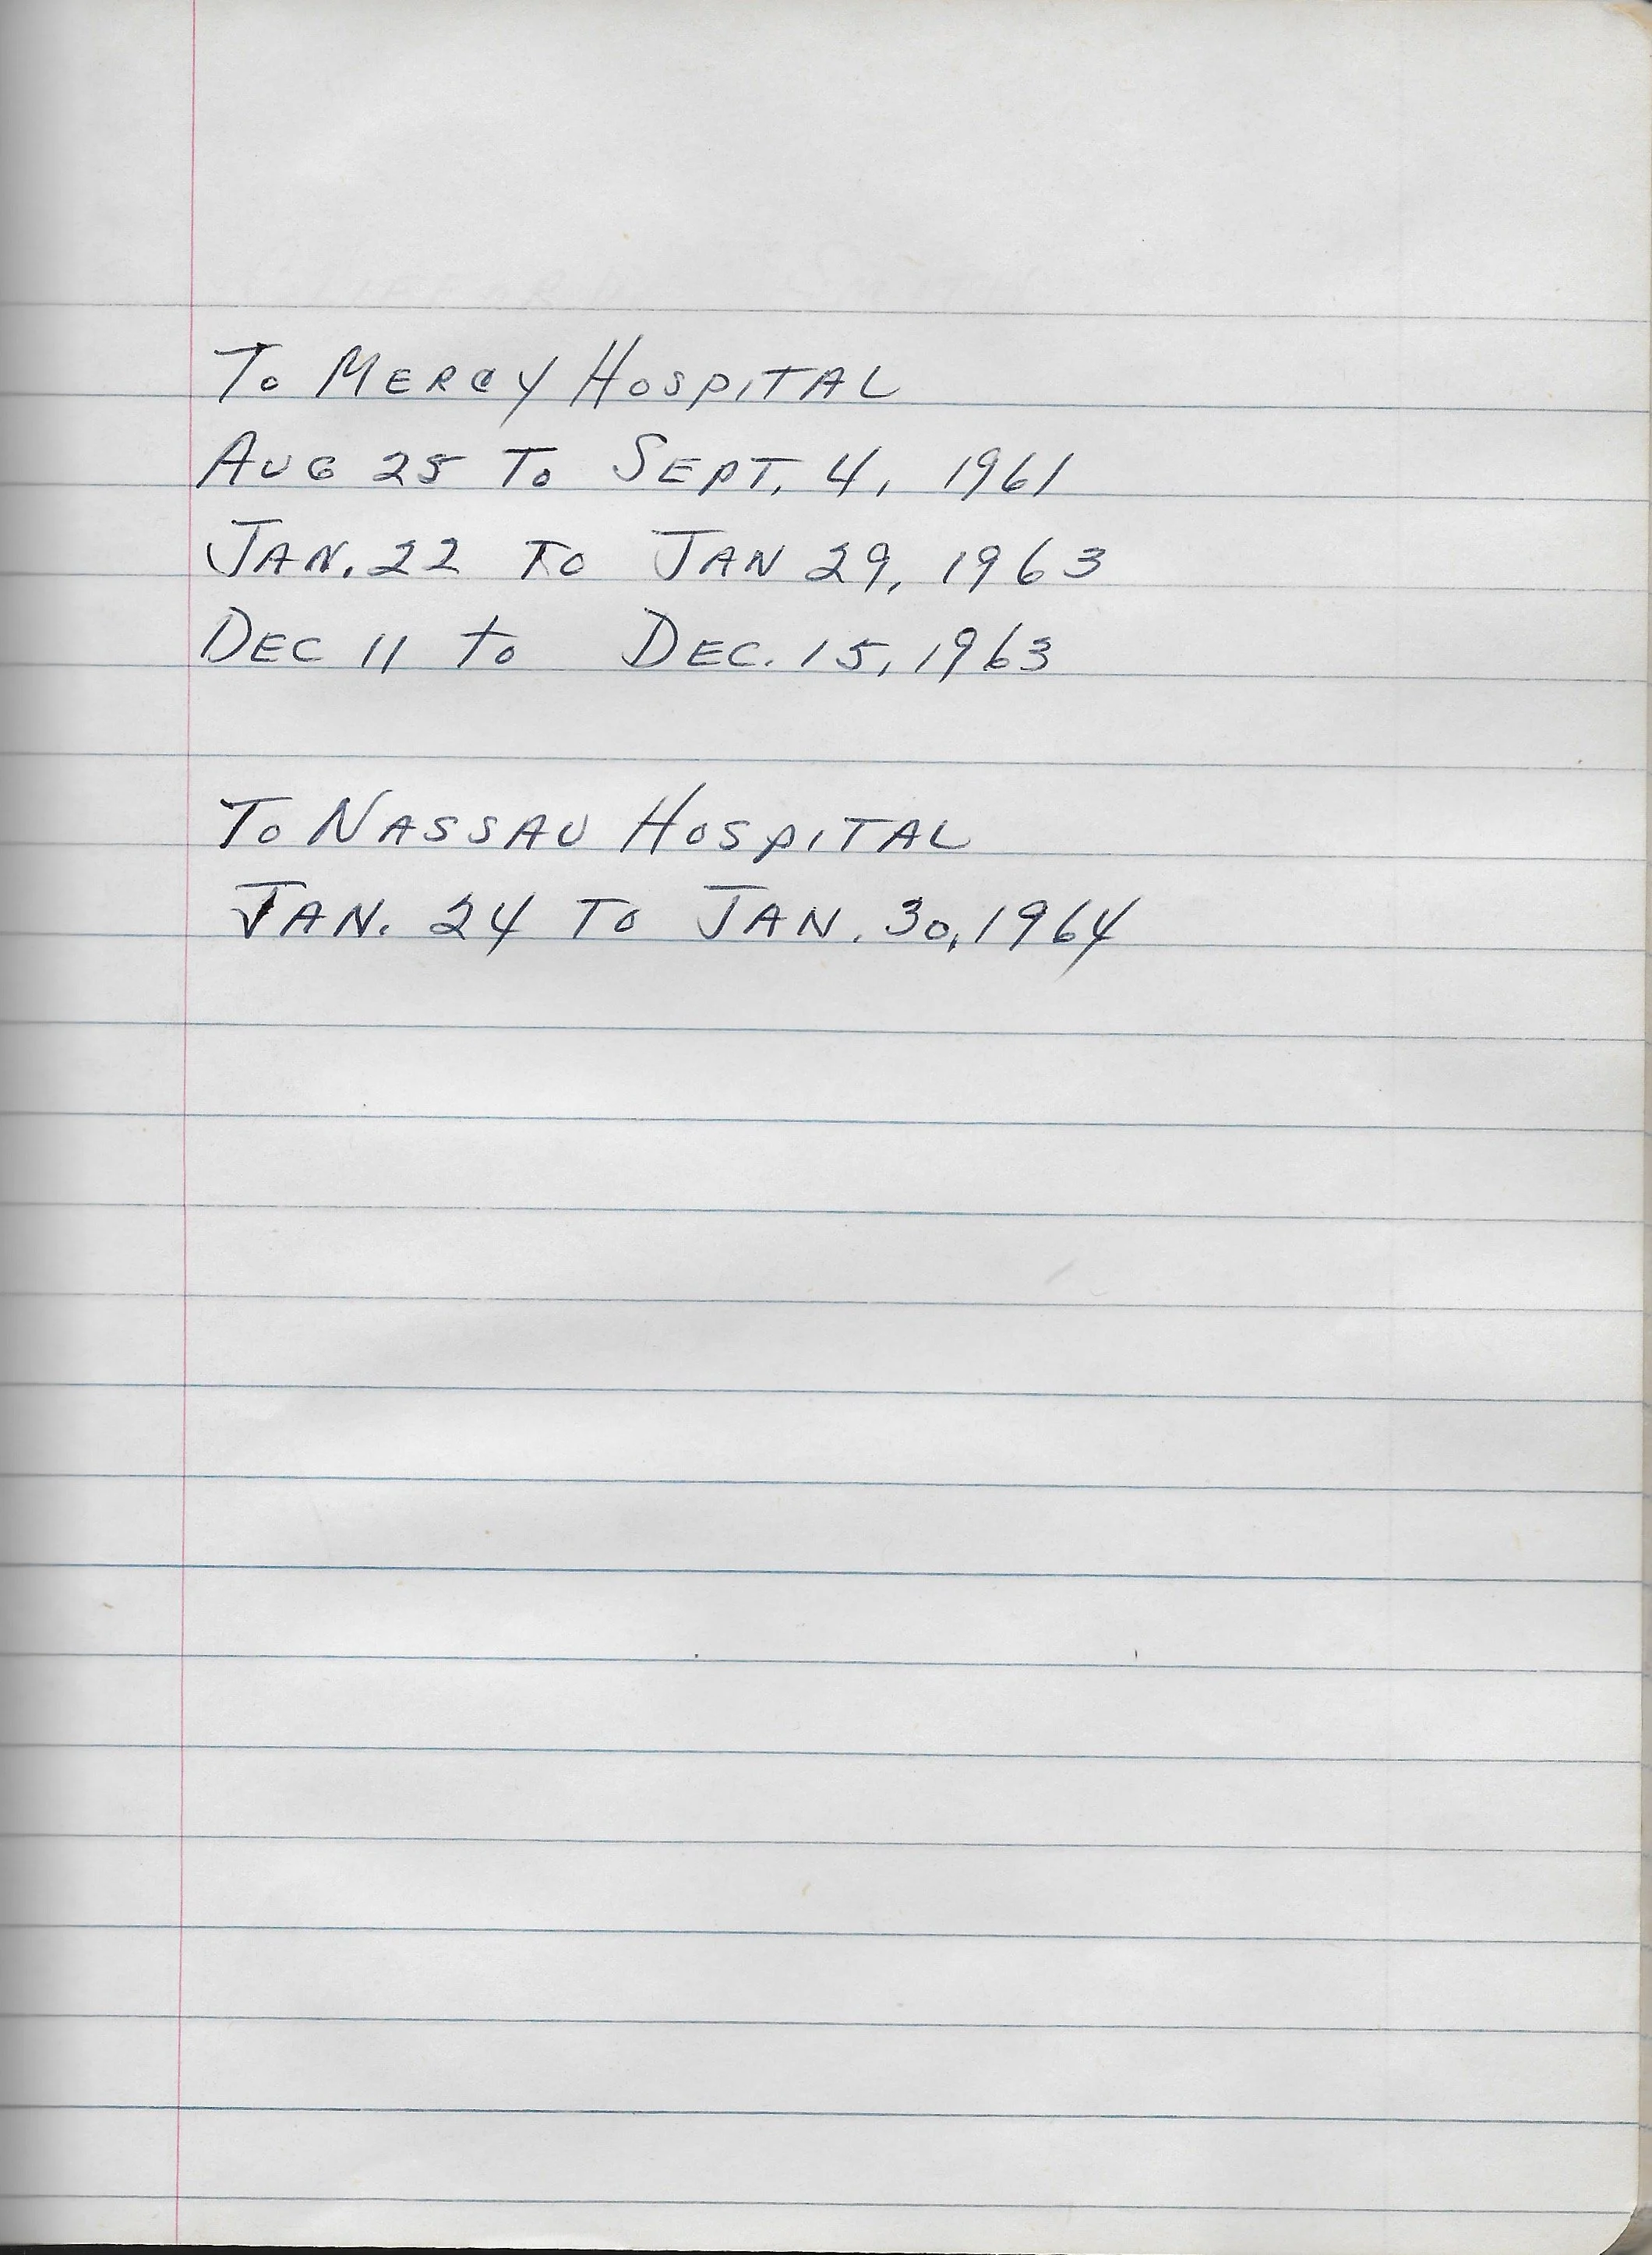 To MERCY HOSPITAL
AUG 25 To SEPT. 4, 1961
JAN. 22 TO JAN 29, 1963
DEC 11 to DEC. 15, 1963
To NASSAU HOSPITAL
JAN. 24 TO JAN. 30, 1964